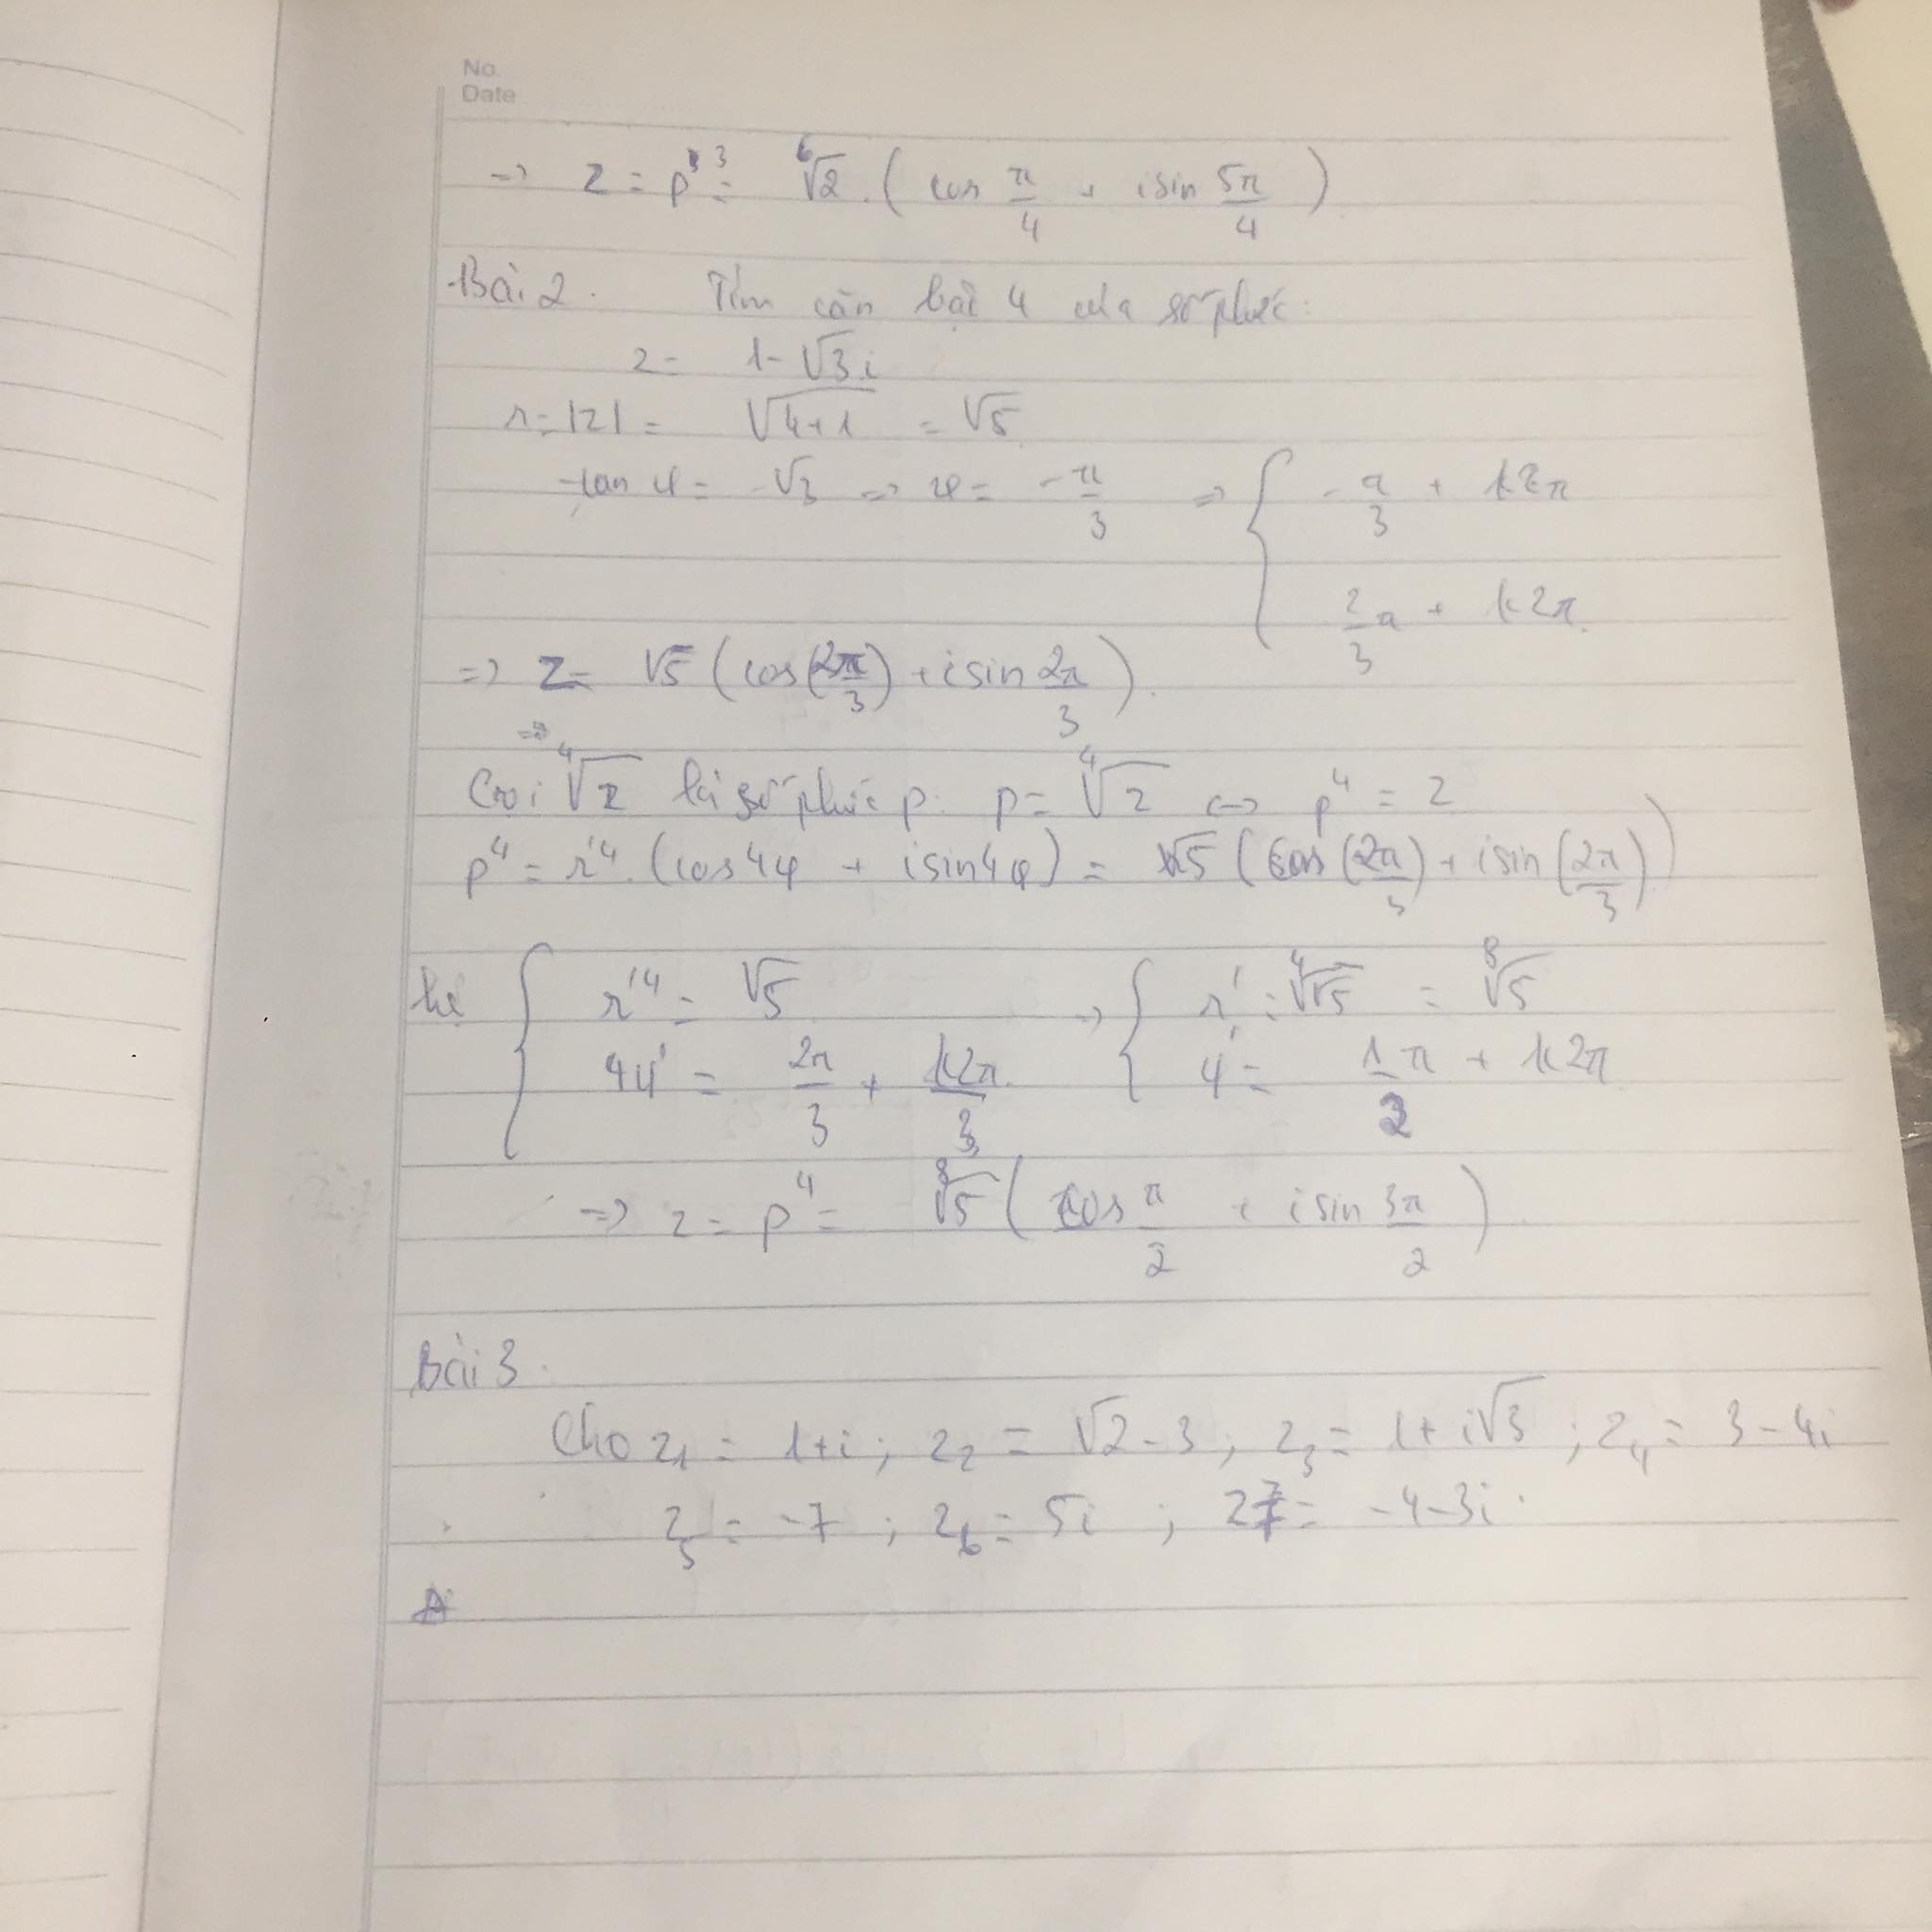 No.
Date
=> z = p³ = ⁶√2 . ( cos π/4 + isin 5π/4 )
Bài 2. Tìm căn bậc 4 của số phức:
z = 1 - √3 i
r = |z| = √(4+1) = √5
tan φ = -√3 => φ = -π/3 => { -π/3 + k2π
2/3 π + k2π
=> z = √5 ( cos(2π/3) + isin 2π/3 ).
=>
Gọi ⁴√z là số phức p. p = ⁴√z <=> p⁴ = z
p⁴ = r'⁴. (cos4φ + isin4φ) = √5 ( cos (2π/3) + isin (2π/3) )
hệ { r'⁴ = √5 => { r' = ⁴√√5 = ⁸√5
4φ' = 2π/3 + k2π/3 φ' = 1/2 π + k2π
=> z = p⁴ = ⁸√5 ( cos π/2 + isin 3π/2 )
Bài 3.
Cho z₁ = 1+i ; z₂ = √2 - 3 ; z₃ = 1 + i√3 ; z₄ = 3 - 4i
z₅ = -7 ; z₆ = 5i ; z7 = -4-3i .